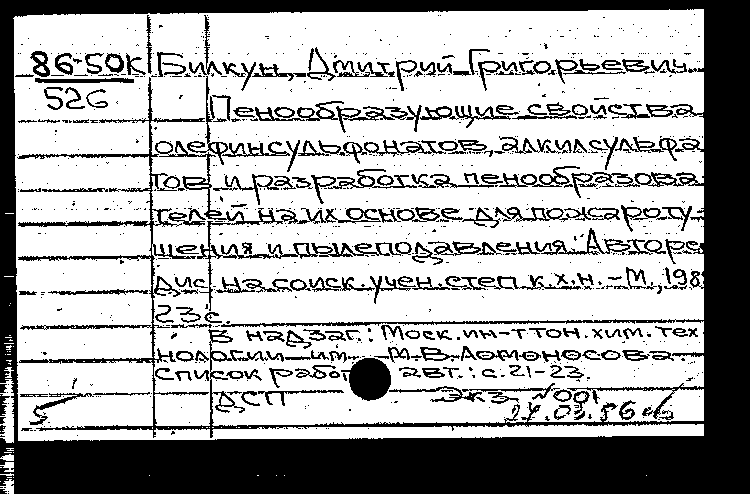 86-50К Билкун, Дмитрий Григорьевич.
526
Пенообразующие свойства
олефинсульфонатов, алкилсульфа
тов и разработка пенообразова-
телей на их основе для пожароту-
шения и пылеподавления: Авторе
дис. на соиск. учен. степ к.х.н. - М., 198
23 с.
В надзаг.: Моск. ин-т тон. хим. тех
нологии им. М.В. Ломоносова.
Список работ авт.: с. 21-23.
ДСП Экз. №001
27.03.86